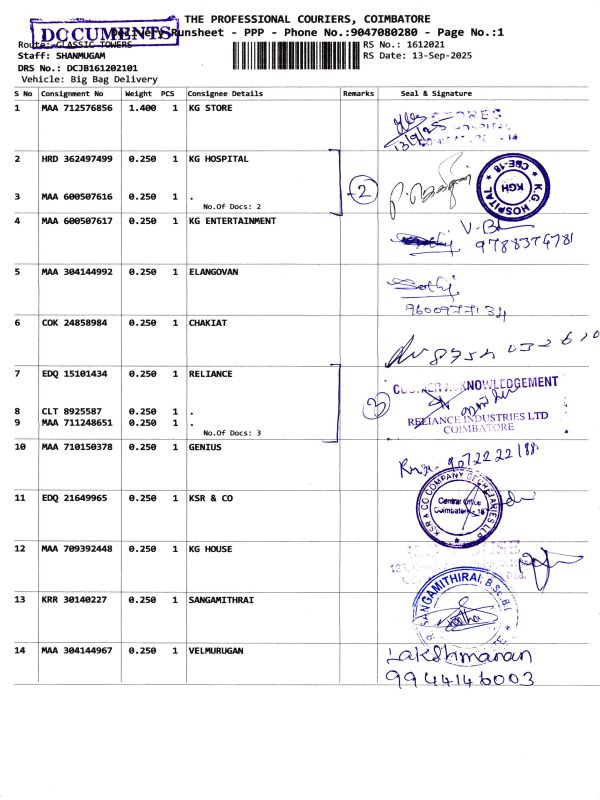 THE PROFESSIONAL COURIERS, COIMBATORE
DOCUMENTS
Delivery Runsheet - PPP - Phone No.:9047080280 - Page No.:1
Route: CLASSIC TOWERS
RS No.: 1612021
Staff: SHANMUGAM
RS Date: 13-Sep-2025
DRS No.: DCJB161202101
Vehicle: Big Bag Delivery
S No Consignment No Weight PCS Consignee Details Remarks Seal & Signature
1 MAA 712576856 1.400 1 KG STORE
13/9/25
2 HRD 362497499 0.250 1 KG HOSPITAL
2
K.G. HOSPITAL
KGH
CBE-18
3 MAA 600507616 0.250 1 .
No.Of Docs: 2
4 MAA 600507617 0.250 1 KG ENTERTAINMENT
9788374781
5 MAA 304144992 0.250 1 ELANGOVAN
9600977134
6 COK 24858984 0.250 1 CHAKIAT
7 EDQ 15101434 0.250 1 RELIANCE
COURIER ACKNOWLEDGEMENT
3
8 CLT 8925587 0.250 1 .
RELIANCE INDUSTRIES LTD
9 MAA 711248651 0.250 1 .
COIMBATORE
No.Of Docs: 3
10 MAA 710150378 0.250 1 GENIUS
11 EDQ 21649965 0.250 1 KSR & CO
KSR & CO COMPANY SECRETARIES LLP
Central Office
Coimbatore - 18
12 MAA 709392448 0.250 1 KG HOUSE
13 KRR 30140227 0.250 1 SANGAMITHRAI
SANGAMITHIRAI, B.Sc.B.L
14 MAA 304144967 0.250 1 VELMURUGAN
Lakshmanan
9944146003